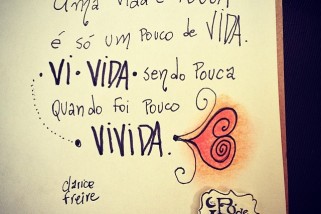 uma vida é pouca
é só um pouco de VIDA.
• VI • VIDA • sendo pouca
quando foi pouco
• VIVIDA.
clarice
freire
Pó de